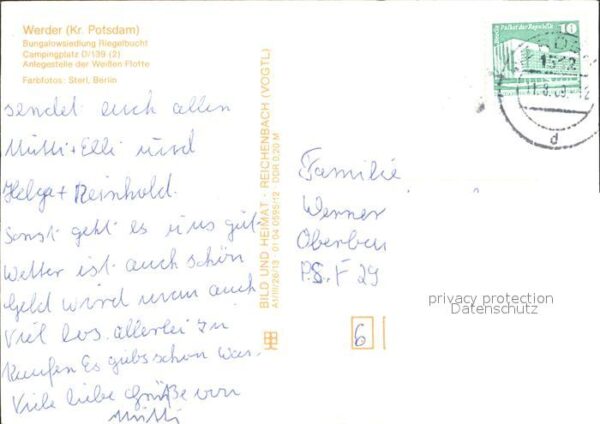 Werder (Kr. Potsdam)
Bungalowsiedlung Riegelbucht
Campingplatz D/139 (2)
Anlegestelle der Weißen Flotte
Farbfotos: Sterl, Berlin
sendet euch allen
Mutti + Elli und
Helga + Reinhold.
Sonst geht es uns gut
Wetter ist auch schön
Geld wird man auch
Viel los. allerlei zu
kaufen Es gibt schon was.
Viele liebe Grüße von
Mutti
BILD UND HEIMAT · REICHENBACH (VOGTL)
A1/III/26/13 · 01 04 0595/12 · DDR 0,20 M
Palast der Republik
10
DDR
d
Familie
Werner
P.S.F 29
6
privacy protection
Datenschutz